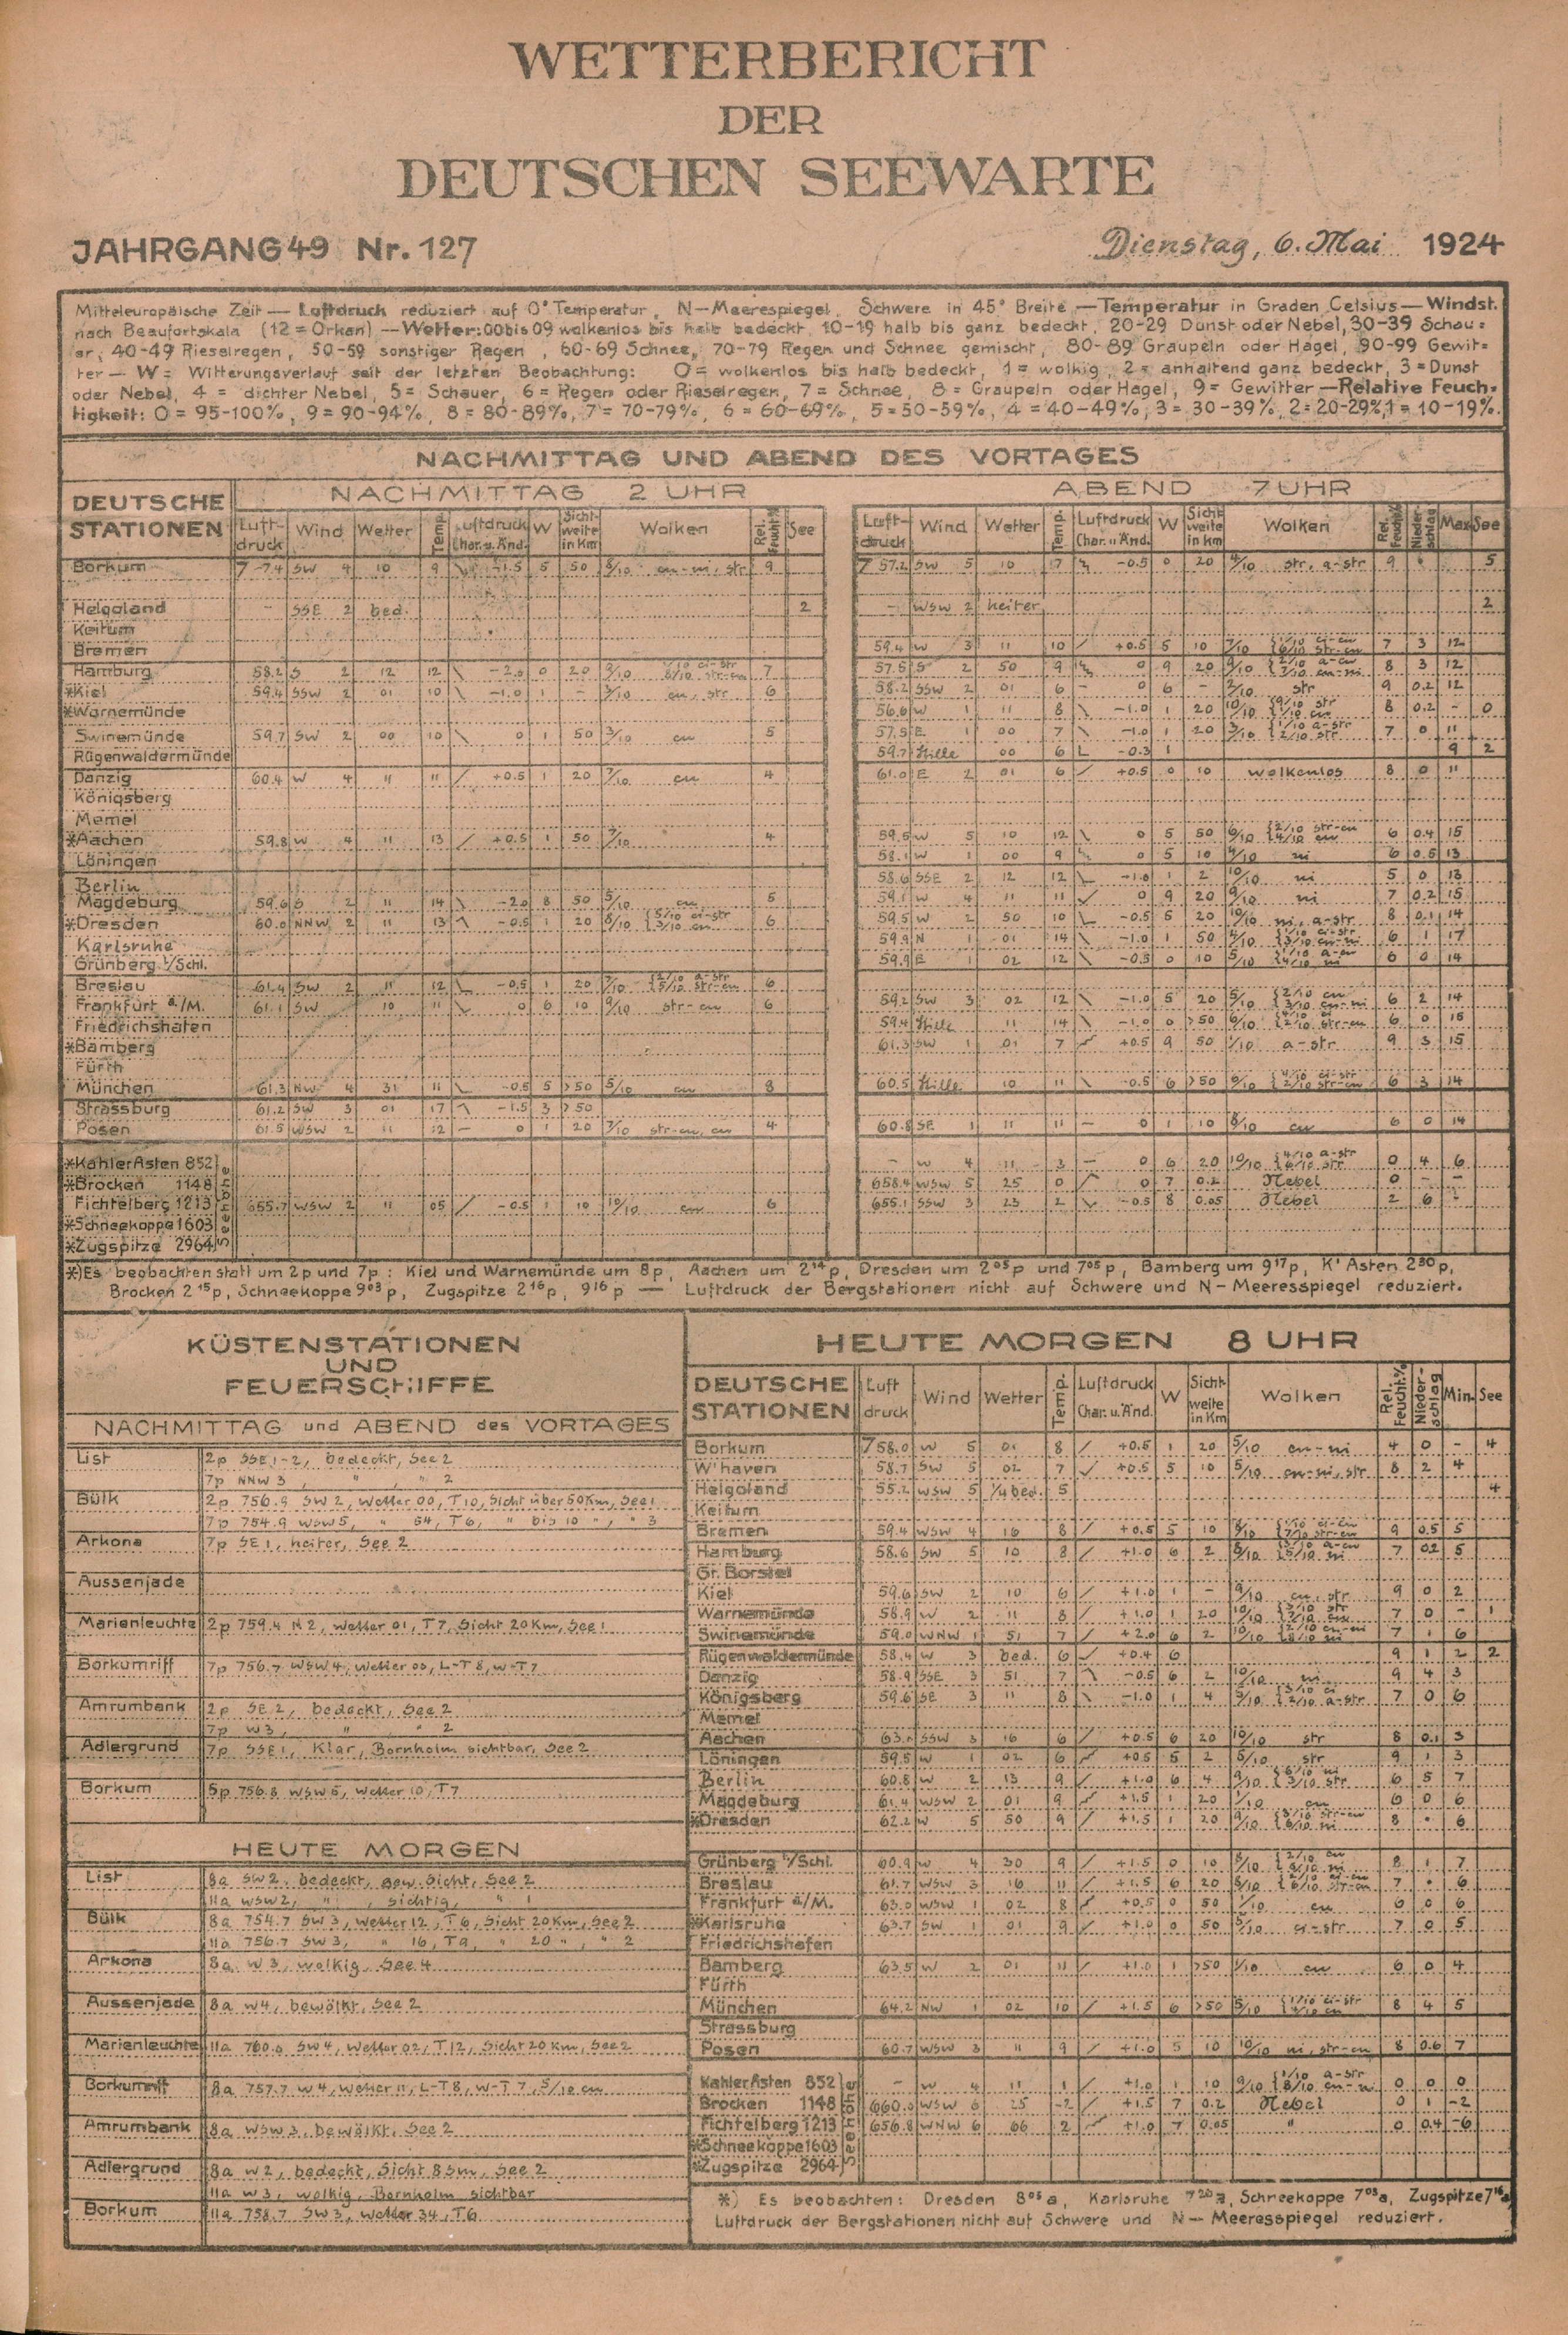 WETTERBERICHT
DER
DEUTSCHEN SEEWARTE
JAHRGANG 49 Nr. 127 Dienstag, 6. Mai 1924
Mitteleuropäische Zeit — Luftdruck reduziert auf 0° Temperatur, N—Meerespiegel, Schwere in 45° Breite — Temperatur in Graden Celsius — Windst.
nach Beaufortskala (12 = Orkan) — Wetter: 00 bis 09 wolkenlos bis halb bedeckt, 10-19 halb bis ganz bedeckt, 20-29 Dunst oder Nebel, 30-39 Schau=
er, 40-49 Rieselregen, 50-59 sonstiger Regen, 60-69 Schnee, 70-79 Regen und Schnee gemischt, 80-89 Graupeln oder Hagel, 90-99 Gewit=
ter — W = Witterungsverlauf seit der letzten Beobachtung: 0 = wolkenlos bis halb bedeckt, 1 = wolkig, 2 = anhaltend ganz bedeckt, 3 = Dunst
oder Nebel, 4 = dichter Nebel, 5 = Schauer, 6 = Regen oder Rieselregen, 7 = Schnee, 8 = Graupeln oder Hagel, 9 = Gewitter — Relative Feuch=
tigkeit: 0 = 95-100%, 9 = 90-94%, 8 = 80-89%, 7 = 70-79%, 6 = 60-69%, 5 = 50-59%, 4 = 40-49%, 3 = 30-39%, 2 = 20-29%, 1 = 10-19%.
NACHMITTAG UND ABEND DES VORTAGES
NACHMITTAG 2 UHR ABEND 7 UHR
DEUTSCHE STATIONEN Luft-druck Wind Wetter Temp. Luftdruck Char. u. Änd. W Sicht-weite in Km Wolken Rel. Feucht.% See Luft-druck Wind Wetter Temp. Luftdruck Char. u. Änd. W Sicht-weite in Km Wolken Rel. Feucht.% Nieder-schlag Max See
Borkum SW 4 10 9 -1.5 5 50 8/10 cu-ni, str 9 757.2 SW 5 10 7 -0.5 0 20 4/10 str, a-str 9 5
Helgoland – SSE 2 bed. 2 – WSW 2 heiter 2
Keitum
Bremen 59.4 W 3 11 10 +0.5 5 10 7/10 1/10 ci-cu 6/10 str-cu 7 3 12
Hamburg 58.2 S 2 12 12 -2.0 0 20 9/10 7 57.5 S 2 50 9 0 9 20 9/10 2/10 a-cu 7/10 cu-ni 8 3 12
*Kiel 59.4 SSW 2 01 10 -1.0 1 – 3/10 cu, str 6 58.2 SSW 2 01 6 – 0 6 – 3/10 str 9 0.2 12
*Warnemünde 56.6 W 1 11 8 -1.0 1 20 10/10 9/10 str 1/10 cu 8 0.2 – 0
Swinemünde 59.7 SW 2 00 10 0 1 50 3/10 cu 5 57.5 E 1 00 7 -1.0 1 20 3/10 1/10 a-str 2/10 str 7 0 11
Rügenwaldermünde 59.7 Stille 00 6 -0.3 1 9 2
Danzig 60.4 W 4 11 11 +0.5 1 20 7/10 cu 4 61.0 E 2 01 6 +0.5 0 10 wolkenlos 8 0 11
Königsberg
Memel
*Aachen 59.8 W 4 11 13 +0.5 1 50 7/10 4 59.5 W 5 10 12 0 5 50 6/10 2/10 str-cu 4/10 cu 6 0.4 15
Löningen 58.1 W 1 00 9 0 5 10 4/10 ni 6 0.5 13
Berlin 58.6 SSE 2 12 12 -1.0 1 2 10/10 ni 5 0 13
Magdeburg 59.6 S 2 11 14 -2.0 8 50 5/10 cu 5 59.1 W 4 11 11 0 9 20 9/10 ni 7 0.2 15
*Dresden 60.0 NNW 2 11 13 -0.5 1 20 8/10 5/10 ci-str 3/10 cu 6 59.5 W 2 50 10 -0.5 5 20 10/10 ni, a-str 8 0.1 14
Karlsruhe 59.9 N 1 01 14 -1.0 1 50 4/10 1/10 ci-str 3/10 cu-ni 6 1 17
Grünberg i/Schl. 59.9 E 1 02 12 -0.5 0 10 5/10 1/10 a-cu 4/10 ni 6 0 14
Breslau 61.4 SW 2 11 12 -0.5 1 20 7/10 2/10 a-str 5/10 str-cu 6
Frankfurt a./M. 61.1 SW 10 11 0 6 10 9/10 str-cu 6 59.2 SW 3 02 12 -1.0 5 20 5/10 2/10 cu 3/10 cu-ni 6 2 14
Friedrichshafen 59.4 Stille 11 14 -1.0 0 >50 6/10 4/10 ci 2/10 str-cu 6 0 15
*Bamberg 61.3 SW 1 01 7 +0.5 9 50 1/10 a-str 9 3 15
Fürth
München 61.3 NW 4 31 11 -0.5 5 >50 5/10 cu 8 60.5 Stille 10 11 -0.5 6 >50 6/10 4/10 ci-str 2/10 str-cu 6 3 14
Strassburg 61.2 SW 3 01 17 -1.5 3 >50
Posen 61.5 WSW 2 11 12 – 0 1 20 7/10 str-cu, cu 4 60.8 SE 1 11 11 – 0 1 10 8/10 cu 6 0 14
*Kahler Asten 852 – W 4 11 3 – 0 6 20 10/10 4/10 a-str 6/10 str 0 4 6
*Brocken 1148 658.4 WSW 5 25 0 0 7 0.2 Nebel 0 – –
Fichtelberg 1213 655.7 WSW 2 11 05 -0.5 1 10 10/10 cu 6 655.1 SSW 3 23 2 -0.5 8 0.05 Nebel 2 6 –
*Schneekoppe 1603
*Zugspitze 2964
Seehöhe
*) Es beobachten statt um 2p und 7p: Kiel und Warnemünde um 8p, Aachen um 2¹⁴p, Dresden um 2⁰⁵p und 7⁰⁵p, Bamberg um 9¹⁷p, K' Asten 2³⁰p,
Brocken 2¹⁵p, Schneekoppe 9⁰³p, Zugspitze 2¹⁶p, 9¹⁶p — Luftdruck der Bergstationen nicht auf Schwere und N—Meeresspiegel reduziert.
KÜSTENSTATIONEN
UND
FEUERSCHIFFE
NACHMITTAG und ABEND des VORTAGES
List 2p SSE 1-2, bedeckt, See 2
7p NNW 3, " , " 2
Bülk 2p 756.9 SW 2, Wetter 00, T 10, Sicht über 50 Km, See 1
7p 754.9 WSW 5, " 54, T 6, " bis 10 ", " 3
Arkona 7p SE 1, heiter, See 2
Aussenjade
Marienleuchte 2p 759.4 N 2, Wetter 01, T 7, Sicht 20 Km, See 1
Borkumriff 7p 756.7 WSW 4, Wetter 00, L-T 8, W-T 7
Amrumbank 2p SE 2, bedeckt, See 2
7p W 3, " " 2
Adlergrund 7p SSE 1, Klar, Bornholm sichtbar, See 2
Borkum 5p 756.8 WSW 5, Wetter 10, T 7
HEUTE MORGEN
List 8a SW 2, bedeckt, gew. Sicht, See 2
11a WSW 2, " , sichtig, " 1
Bülk 8a 754.7 SW 3, Wetter 12, T 6, Sicht 20 Km, See 2
11a 756.7 SW 3, " 16, T 9, " 20 ", " 2
Arkona 8a W 3, wolkig, See 4
Aussenjade 8a W 4, bewölkt, See 2
Marienleuchte 11a 760.6 SW 4, Wetter 02, T 12, Sicht 20 Km, See 2
Borkumriff 8a 757.7 W 4, Wetter 11, L-T 8, W-T 7, 5/10 cu
Amrumbank 8a WSW 3, bewölkt, See 2
Adlergrund 8a W 2, bedeckt, Sicht 8 Sm, See 2
11a W 3, wolkig, Bornholm sichtbar
Borkum 11a 758.7 SW 3, Wetter 34, T 6
HEUTE MORGEN 8 UHR
DEUTSCHE STATIONEN Luft druck Wind Wetter Temp. Luftdruck Char. u. Änd. W Sicht-weite in Km Wolken Rel. Feucht.% Nieder-schlag Min. See
Borkum 758.0 W 5 01 8 +0.5 1 20 5/10 cu-ni 4 0 – 4
W'haven 58.7 SW 5 02 7 +0.5 5 10 5/10 cu-ni, str 8 2 4
Helgoland 55.2 WSW 5 1/4 bed. 5 4
Keitum
Bremen 59.4 WSW 4 16 8 +0.5 5 10 8/10 1/10 ci-cu 7/10 str-cu 9 0.5 5
Hamburg 58.6 SW 5 10 8 +1.0 6 2 8/10 3/10 a-cu 5/10 ni 7 0.2 5
Gr. Borstel
Kiel 59.6 SW 2 10 6 +1.0 1 – 9/10 cu, str 9 0 2
Warnemünde 58.9 W 2 11 8 +1.0 1 20 10/10 3/10 str 7/10 cu 7 0 – 1
Swinemünde 59.0 WNW 1 51 7 +2.0 6 2 10/10 2/10 cu-ni 8/10 ni 7 1 6
Rügenwaldermünde 58.4 W 3 bed. 6 +0.4 6 9 1 2 2
Danzig 58.9 SSE 3 51 7 -0.5 6 2 10/10 ni 9 4 3
Königsberg 59.6 SE 3 11 8 -1.0 1 4 5/10 3/10 ci 2/10 a-str 7 0 6
Memel
Aachen SSW 3 16 6 +0.5 6 20 10/10 str 8 0.1 3
Löningen 59.5 W 1 02 6 +0.5 5 2 5/10 str 9 1 3
Berlin 60.8 W 2 13 9 +1.0 6 4 9/10 6/10 ni 3/10 str 6 5 7
Magdeburg 61.4 WSW 2 01 9 +1.5 1 20 1/10 cu 6 0 6
*Dresden 62.2 W 5 50 9 +1.5 1 20 9/10 3/10 str-cu 6/10 ni 8 6
Grünberg i/Schl. 60.9 W 4 30 9 +1.5 0 10 8/10 2/10 cu ni 8 1 7
Breslau 61.7 WSW 3 16 11 +1.5 6 20 8/10 2/10 6/10 str-cu 7 6
Frankfurt a./M. 63.0 WSW 1 02 8 +0.5 0 50 1/10 cu 6 0 6
*Karlsruhe 63.7 SW 1 01 9 +1.0 0 50 5/10 ci-str 7 0 5
Friedrichshafen
Bamberg 63.5 W 2 01 11 +1.0 1 >50 1/10 cu 6 0 4
Fürth
München 64.2 NW 1 02 10 +1.5 6 >50 5/10 1/10 ci-str 4/10 cu 8 4 5
Strassburg
Posen 60.7 WSW 3 11 9 +1.0 5 10 10/10 ni, str-cu 8 0.6 7
Kahler Asten 852 – W 4 11 1 +1.0 1 10 9/10 1/10 a-str 8/10 cu-ni 0 0 0
Brocken 1148 660.0 WSW 6 25 -2 +1.5 7 0.2 Nebel 0 1 -2
Fichtelberg 1213 656.8 WNW 6 66 2 +1.0 7 0.05 " 0 0.4 -6
*Schneekoppe 1603
*Zugspitze 2964
Seehöhe
*) Es beobachten: Dresden 8⁰⁵a, Karlsruhe 7²⁰a, Schneekoppe 7⁰³a, Zugspitze 7¹⁶a
Luftdruck der Bergstationen nicht auf Schwere und N—Meeresspiegel reduziert.